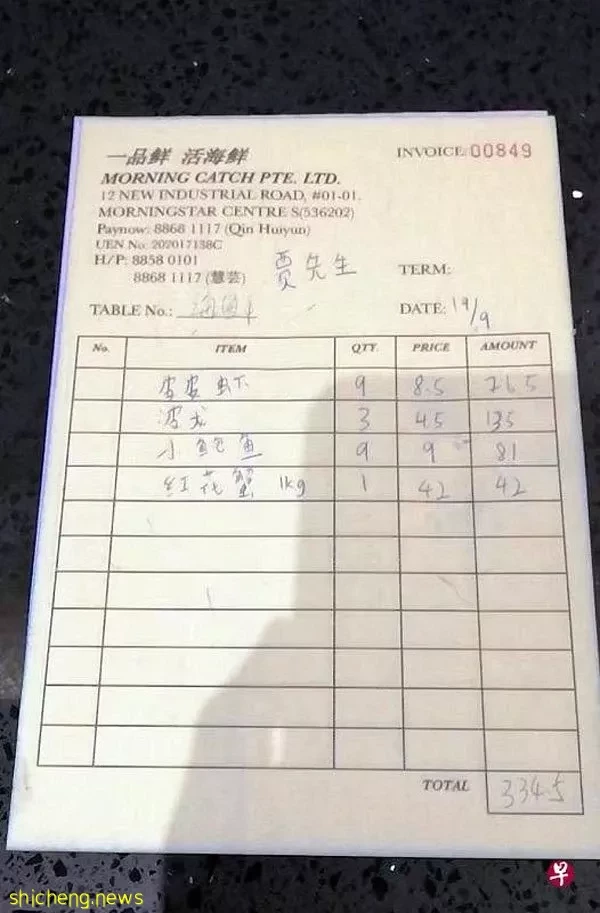 一品鲜 活海鲜
INVOICE: 00849
MORNING CATCH PTE. LTD.
12 NEW INDUSTRIAL ROAD, #01-01.
MORNINGSTAR CENTRE S(536202)
Paynow: 8868 1117 (Qin Huiyun)
UEN No: 202017138C
H/P: 8858 0101
8868 1117 (慧芸)
贾先生
TERM:
TABLE No.:
DATE: 19/9
No. ITEM QTY. PRICE AMOUNT
皮皮虾 9 8.5 76.5
波龙 3 45 135
小鲍鱼 9 9 81
红花蟹 1kg 1 42 42
TOTAL 334.5
早
shicheng.news